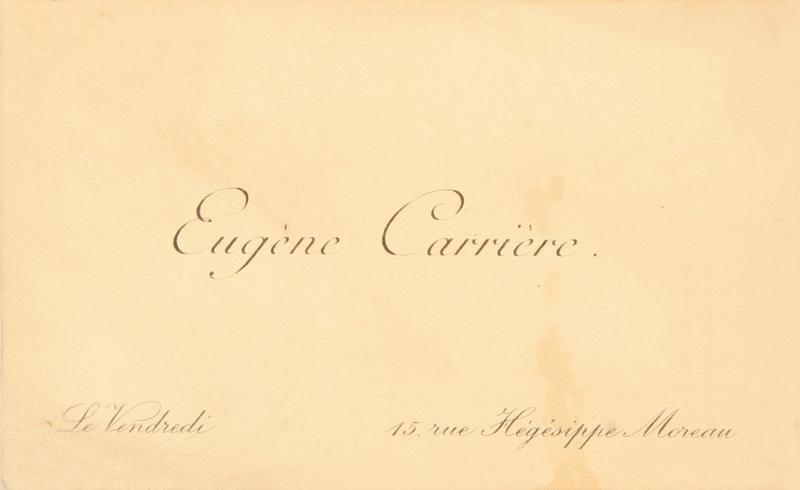 Eugène Carrière.
Le Vendredi
15. rue Hégésippe Moreau